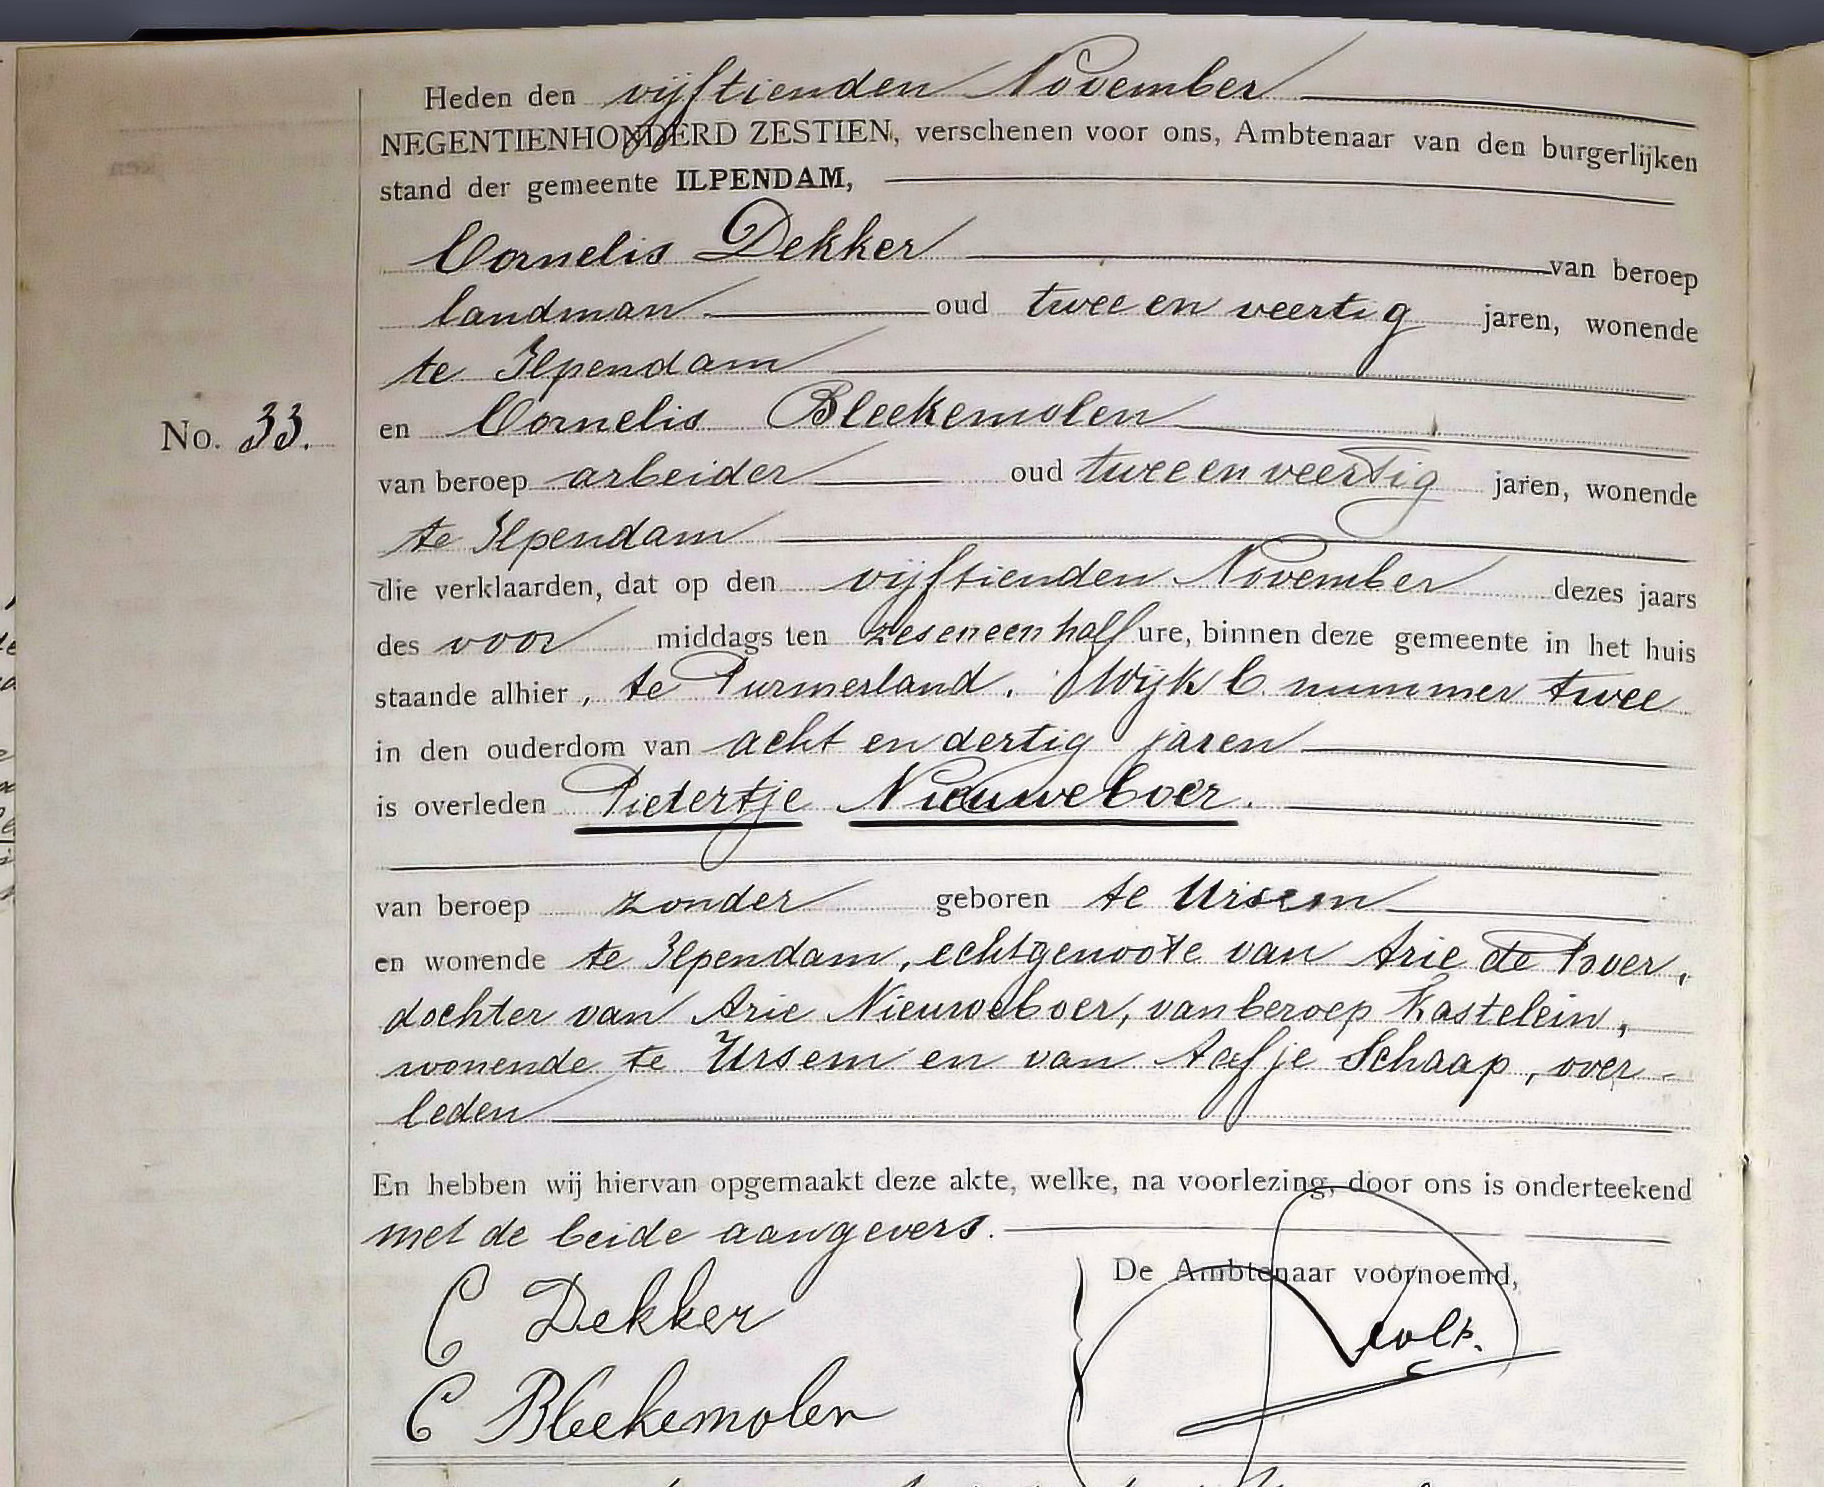 Heden den vijftienden November
NEGENTIENHONDERD ZESTIEN, verschenen voor ons, Ambtenaar van den burgerlijken
stand der gemeente ILPENDAM,
Cornelis Dekker van beroep
landman oud twee en veertig jaren, wonende
te Ilpendam
No. 33. en Cornelis Bleekemolen
van beroep arbeider oud twee en veertig jaren, wonende
te Ilpendam
die verklaarden, dat op den vijftienden November dezes jaars
des voor middags ten zes en een half ure, binnen deze gemeente in het huis
staande alhier, te Purmerland. Wijk C nummer twee
in den ouderdom van acht en dertig jaren
is overleden Pietertje Nieuweboer.
van beroep zonder geboren te Ursem
en wonende te Ilpendam, echtgenoote van Arie de Boer,
dochter van Arie Nieuweboer, van beroep Kastelein,
wonende te Ursem en van Aafje Schaap, over-
leden
En hebben wij hiervan opgemaakt deze akte, welke, na voorlezing, door ons is onderteekend
met de beide aangevers.
De Ambtenaar voornoemd,
C Dekker
C Bleekemolen